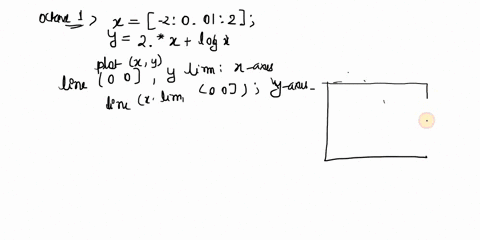 octave 1 > x = [-2: 0. 01: 2];
y = 2.* x + log x
plot (x, y)
line [0 0] , y lim: x-axes
line (x. lim, [0 0]) ; y-axes